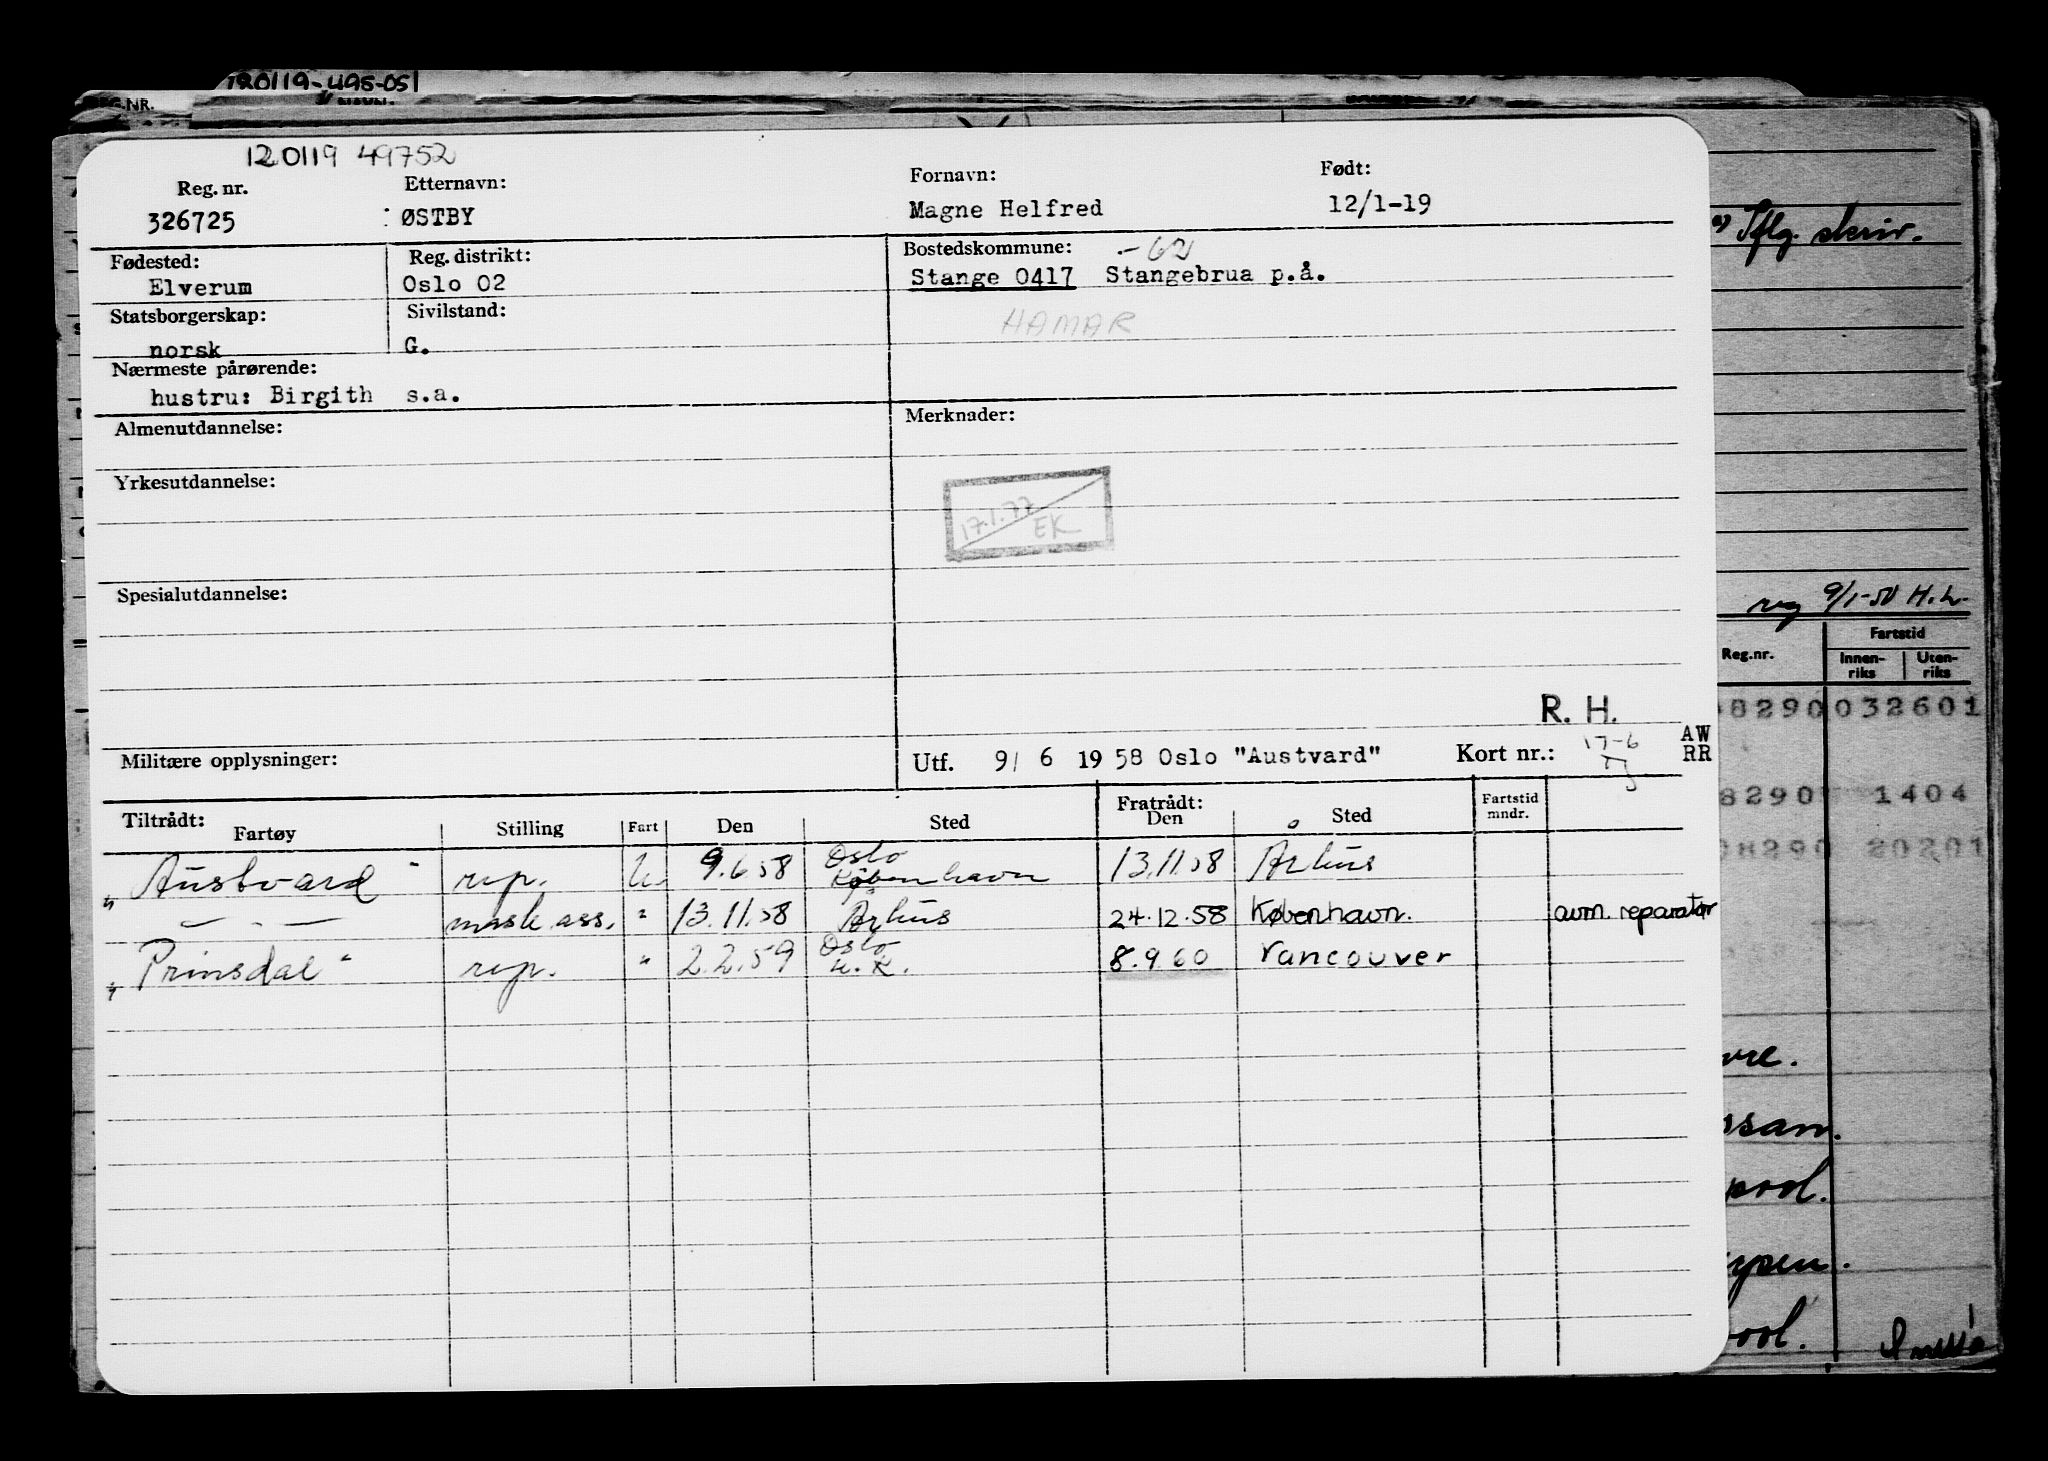 120119-495-051
REG.NR.
120119 49752
Reg. nr. Etternavn: Fornavn: Født:
326725 ØSTBY Magne Helfred 12/1-19
Fødested: Reg. distrikt: Bostedskommune: -62
Elverum Oslo 02 Stange 0417 Stangebrua p.å.
Statsborgerskap: Sivilstand: HAMAR
norsk G.
Nærmeste pårørende:
hustru: Birgith s.a.
Almenutdannelse: Merknader:
Yrkesutdannelse:
17.1.77 EK
Spesialutdannelse:
R. H.
Militære opplysninger: Utf. 9/ 6 1958 Oslo "Austvard" Kort nr.: 17-6 AW
RR
Tiltrådt: Fratrådt:
Fartøy Stilling Fart Den Sted Den Sted Fartstid mndr.
"Austvard" rep. U. 9.6.58 Oslo København 13.11.58 Århus
— " — mask.ass. " 13.11.58 Århus 24.12.58 København. avm. reparatør
"Prinsdal" rep. " 2.2.59 Oslo U.K. 8.9.60 Vancouver
Iflg. skriv.
reg 9/1-50 H.L.
Reg.nr. Fartstid
Innen-riks Uten-riks
8290 032601
8290 1404
08290 20201